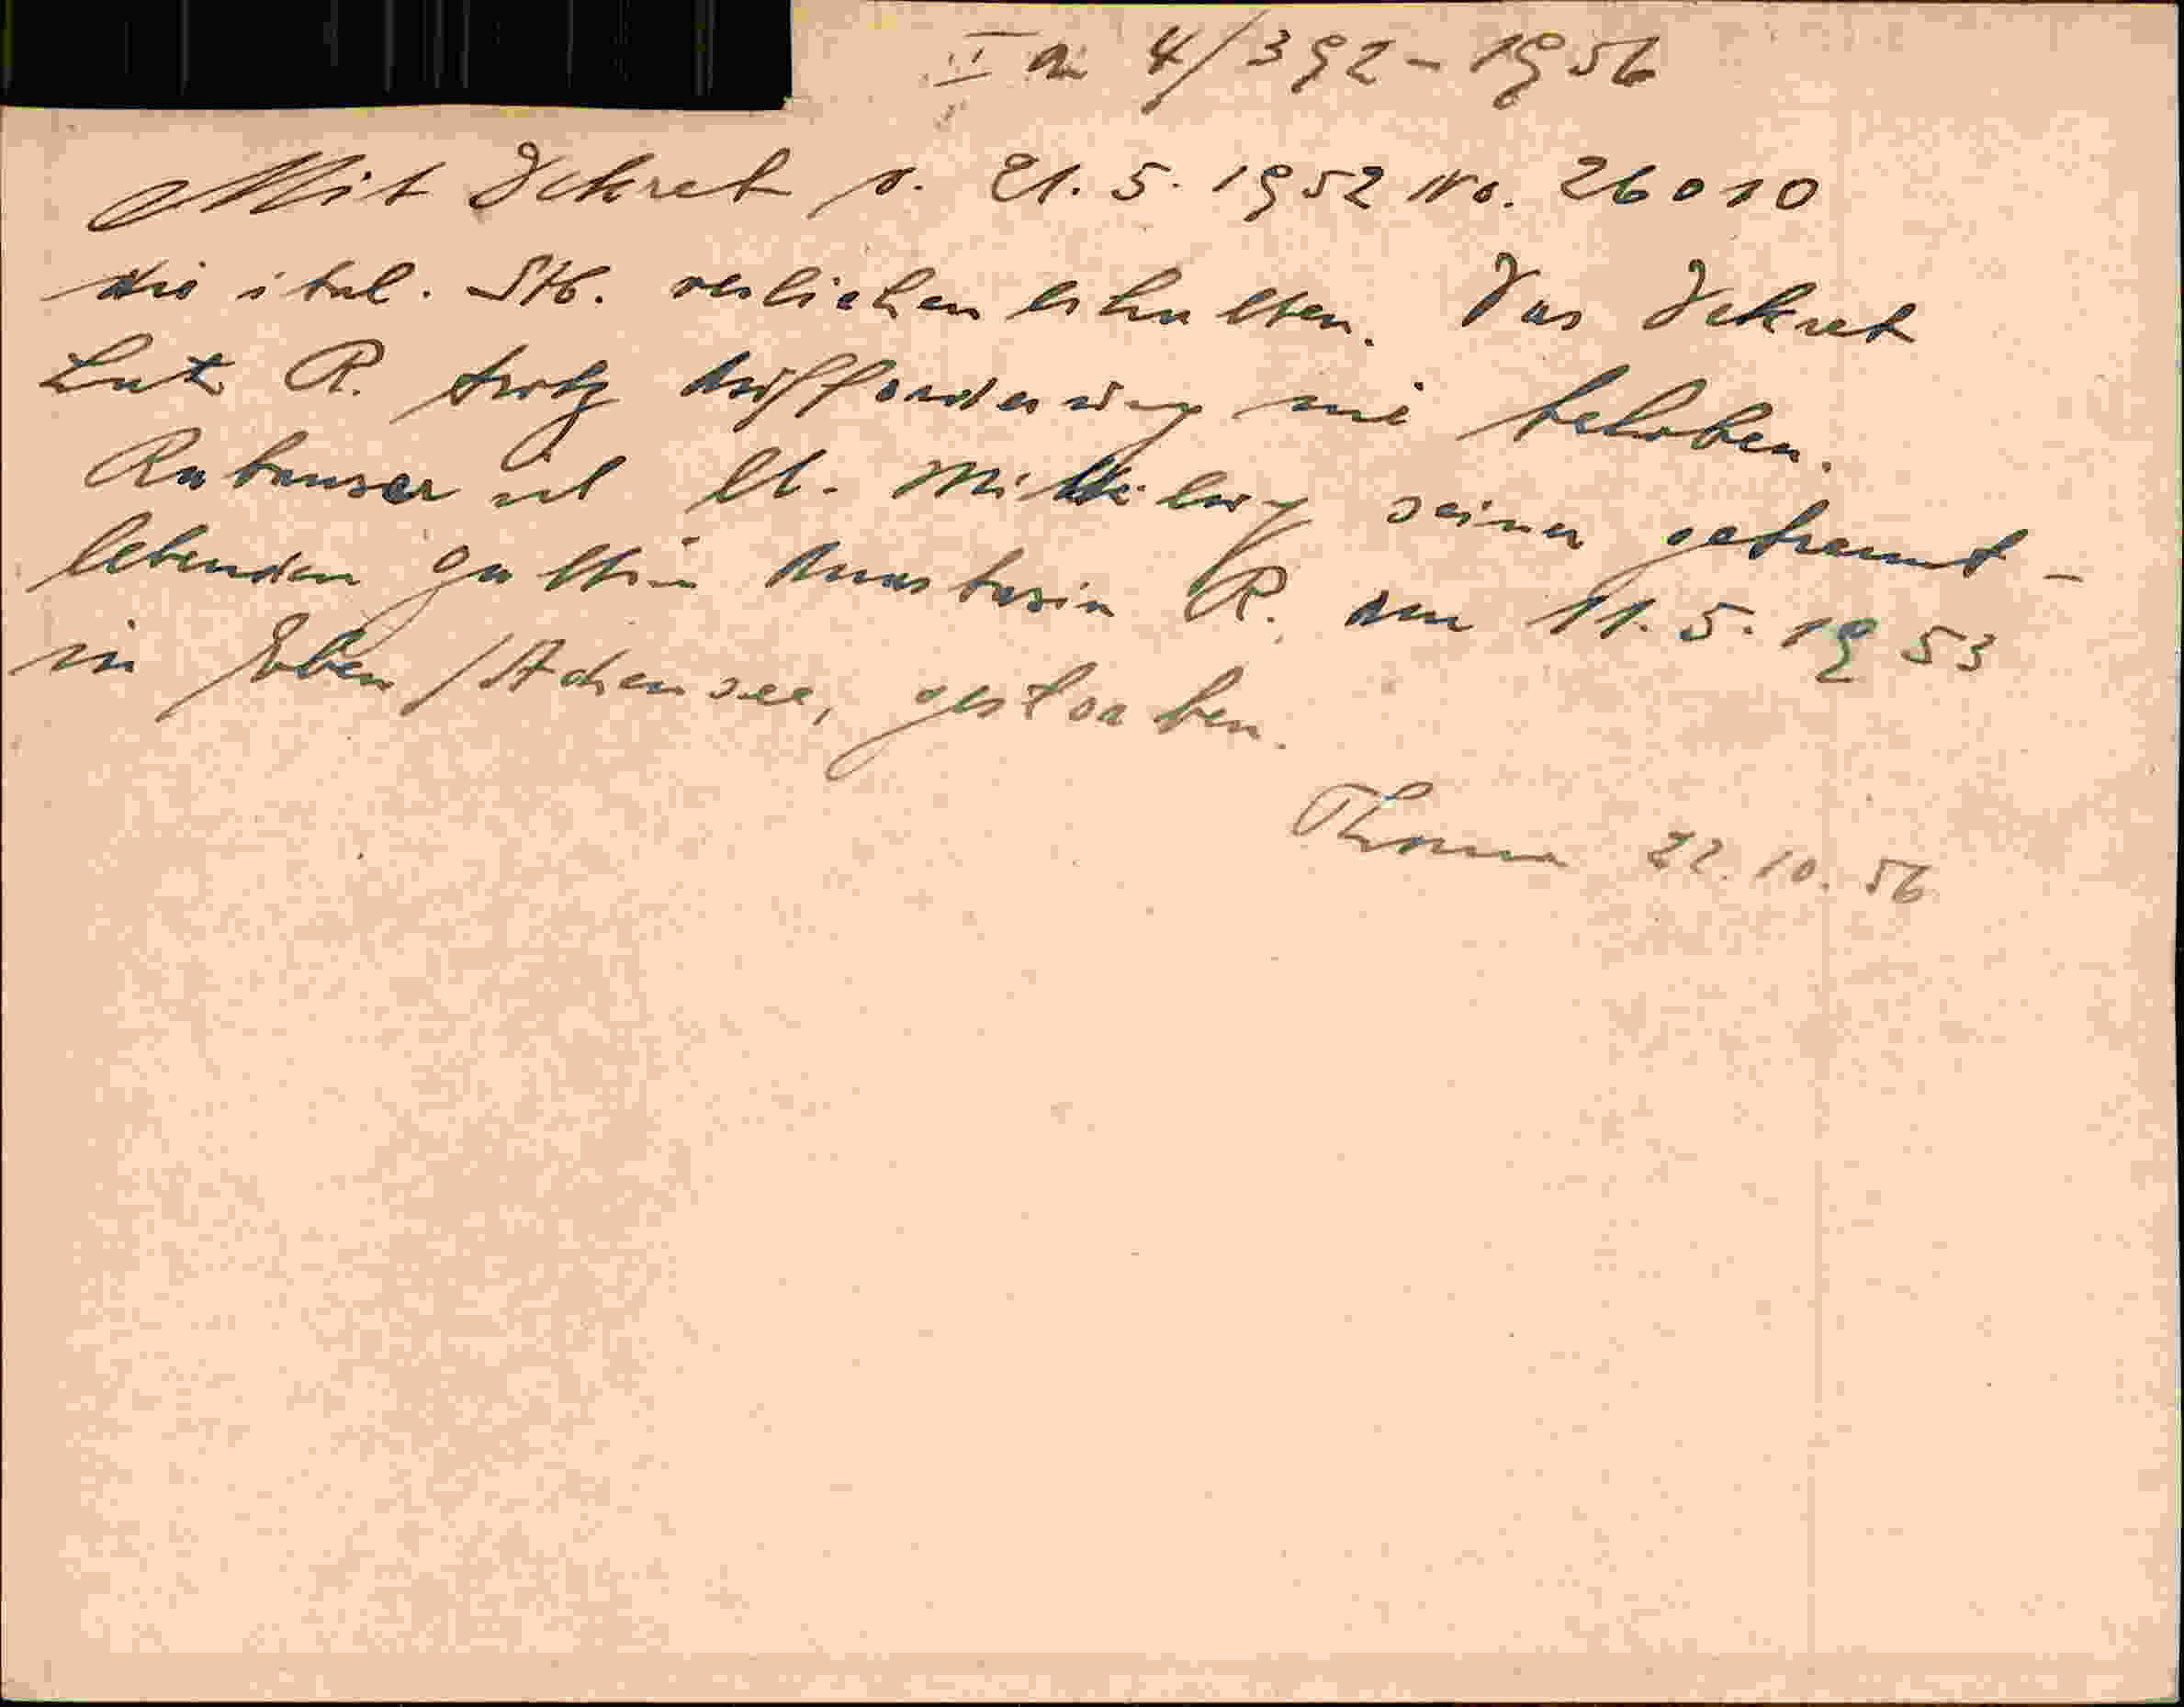 II a 4/392-1956
Mit Dekret v. 21.5.1952 No. 26010
die ital. Stb. verliehen erhalten. Das Dekret
hat R. trotz Aufforderung nie behoben.
Rabanser ist lt. Mitteilung seiner getrennt-
lebenden Gattin Anastasia R. am 11.5.1953
in Eben/Achensee, gestorben.
22.10.56